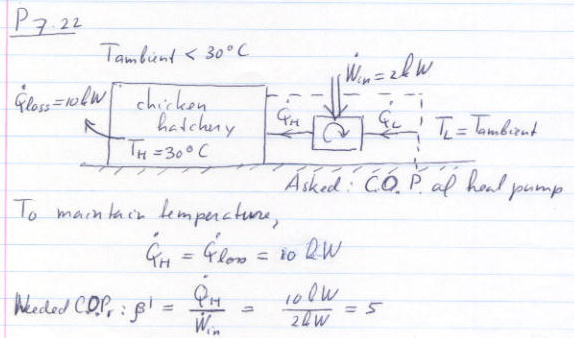 P 7.22
Tambient < 30°C
Q̇loss = 10 kW
chicken
hatchery
T_H = 30°C
Ẇin = 2 kW
Q̇_H
Q̇_L
T_L = Tambient
Asked: C.O.P. of heat pump
To maintain temperature,
Q̇_H = Q̇loss = 10 kW
Needed C.O.P.: β' = Q̇_H / Ẇin = 10 kW / 2 kW = 5